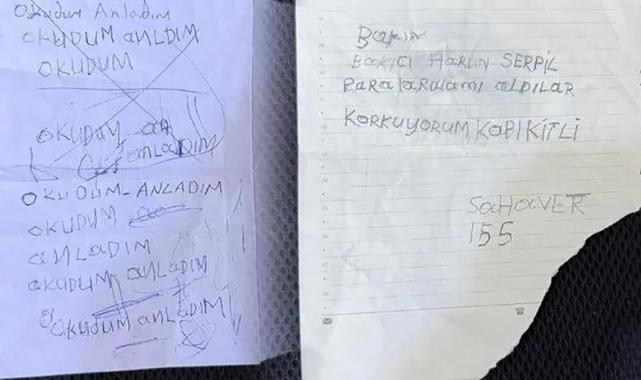 Okudum Anladım
OKUDUM aNLDIM
OKUDUM
OKUDUM
OKUDUM-ANLADIM
OKUDUM
aNLADIM
OKUDUM aNLADIM
OKUDUM aNLADIM
Bakın
BAKICI HARUN SERPİL
KORKUYORUM KAPI KİTLİ
SaHaVER
155